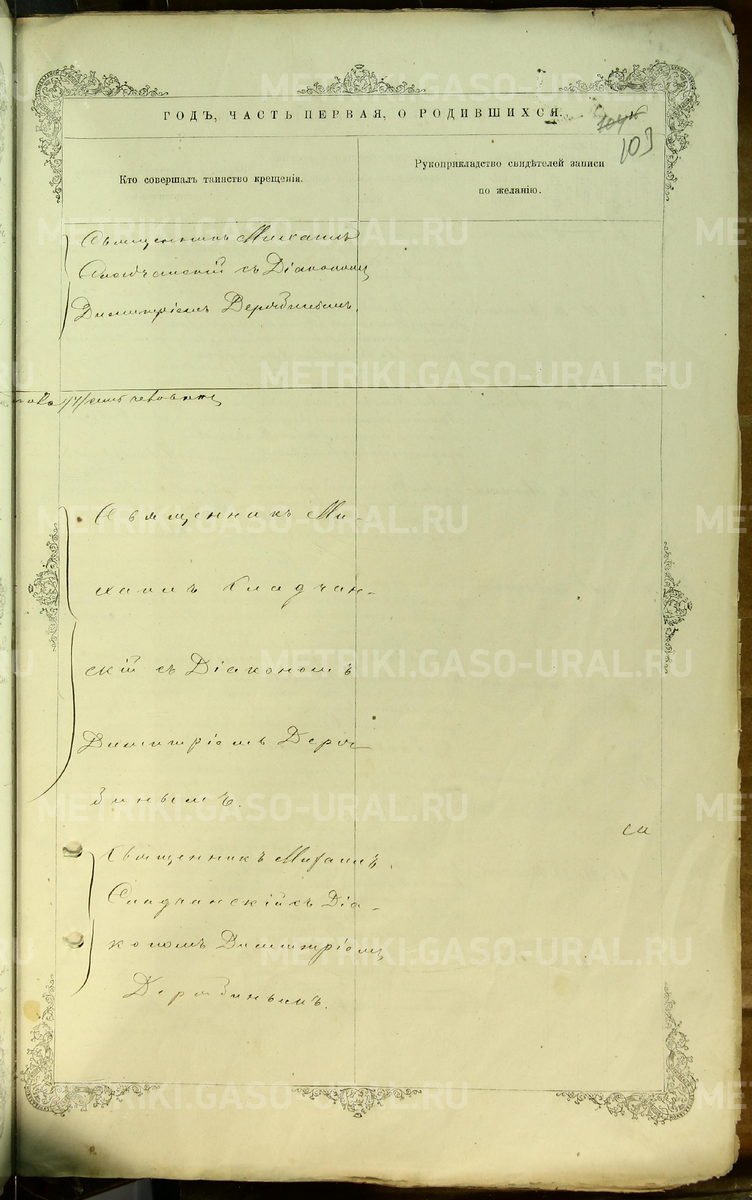 ГОДЪ, ЧАСТЬ ПЕРВАЯ, О РОДИВШИХСЯ.
103
Кто совершалъ таинство крещенія.
Рукоприкладство свидѣтелей записи
по желанію.
Священникъ Михаилъ
съ Діакономъ
Димитріемъ
человѣкъ
Священникъ Ми-
хаилъ Сладчан-
скій съ Діакономъ
Димитріемъ Деря-
бинымъ.
Священникъ Михаилъ
Сладчанскій съ Діа-
кономъ Димитріемъ
Дерябинымъ.
METRIKI.GASO-URAL.RU